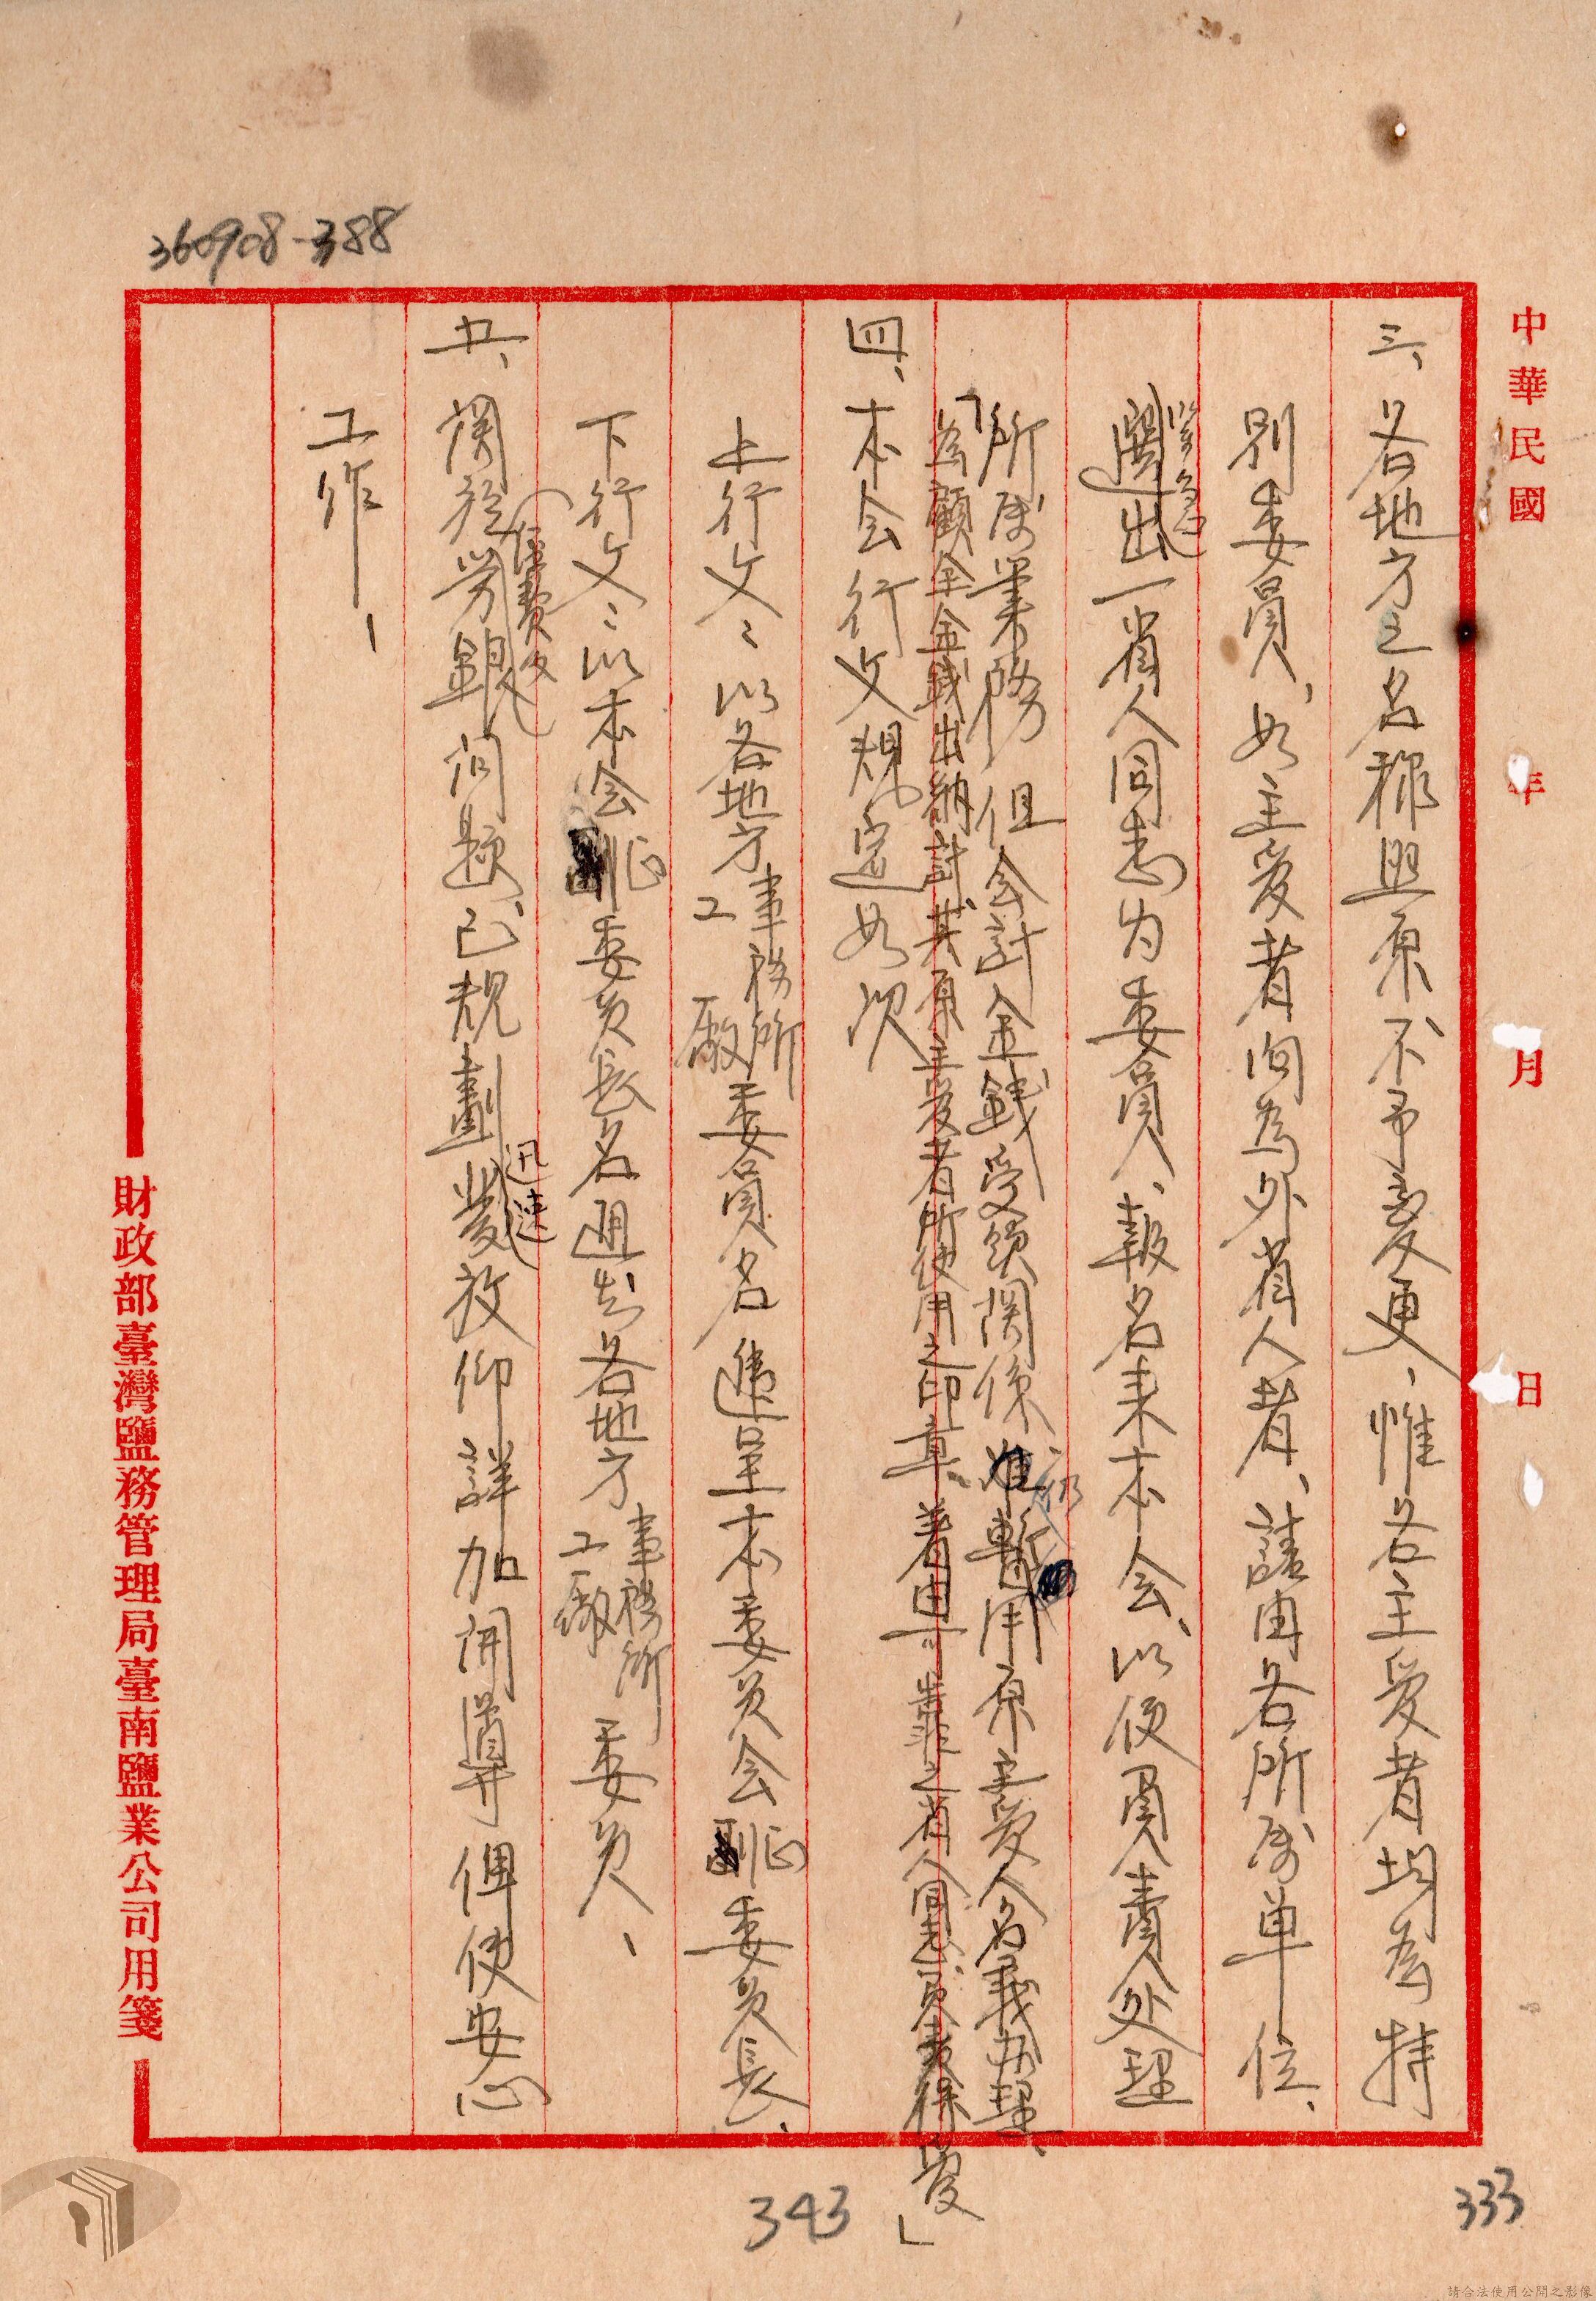 中華民國 年 月 日
三、各地方之名稱與原不予変更、惟各主管者均為特
別委員、如主管者向為外省人者、請由各所屬單位、
選出一省人同志为委員、報名来本会、以便負責处理
所屬業務 但会計金錢受領関係 仍暫用原主管人名義办理、
「為顧全金錢出納計其原主管者所使用之印章、着由可靠之省人同志負責保管」
四、本会行文規定如次
上行文：以各地方事務所 工廠委員名進呈本委员会正委员長、
下行文：以本会正委员長名通知各地方事務所 工廠委员、
五、関於勞銀 問題已規劃迅速發放仰詳加開導俾使安心
工作、
財政部臺灣鹽務管理局臺南鹽業公司用箋
360908-388
343
333
請合法使用公開之影像